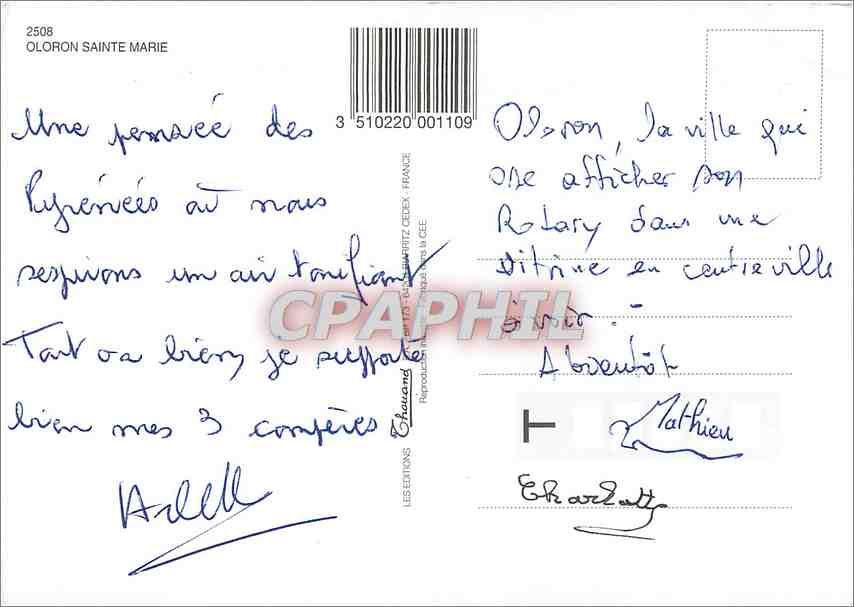 2508
OLORON SAINTE MARIE
3 510220 001109
Une pensée des
Pyrénées où nous
respirons un air tonifiant
Tout va bien, je supporte
bien mes 3 compères.
LES EDITIONS Thouand
Reproduction
CEDEX - FRANCE
dans la CEE
CPAPHIL
Oloron, la ville qui
ose afficher son
Rotary dans une
vitrine en centre ville
à voir !
A bientôt
Mathieu
T
Charlotte